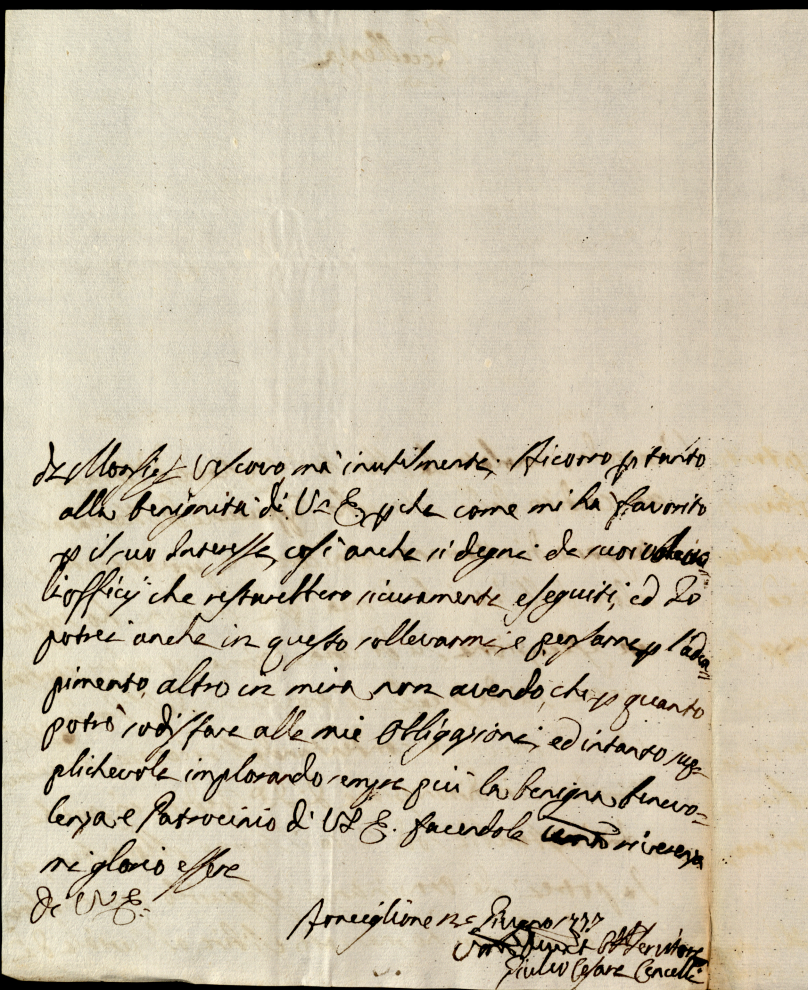 Monsig.r Vescovo, mà inutilmente; Ricorro p tanto
alla benignità di V.E. p che come mi hà favorito
p il suo Interesse, così anche si degni de suoi
officij che resterebbero sicuramente eseguiti, ed Io
potrei anche in questo sollevarmi, e pensarne p l'adem=
pimento, altro in mira non avendo, che p quanto
potrò sodisfare alle mie Obligazioni, ed intanto sup=
plichevole implorando sempre più la benigna benevo=
lenza e Patrocinio di V.E. facendole riverenza
mi glorio essere
di V.E.
Ronciglione Giugno
Giulio Cesare Cencelli